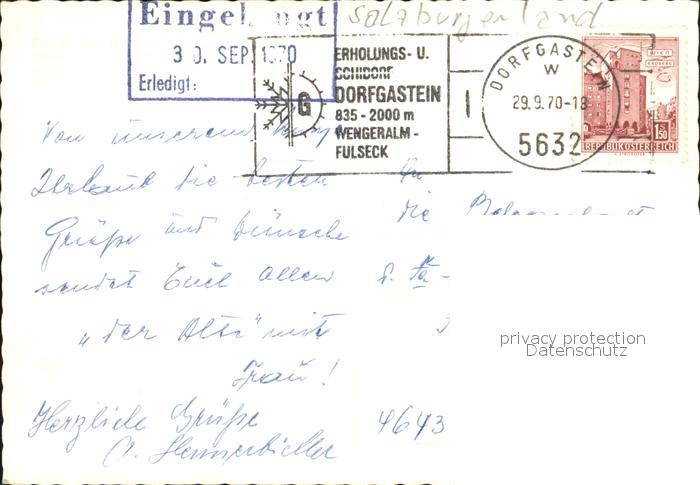 Eingelangt
Salzburgerland
30. SEP. 1970
Erledigt:
ERHOLUNGS- U.
SCHIDORF
DORFGASTEIN
835 - 2000 m
WENGERALM -
FULSECK
G
DORFGASTEIN
W
29.9.70-18
5632
WIEN
ERDBERG
1.50
REPUBLIK ÖSTERREICH
Von unserem
Urlaub die besten
Grüße und Wünsche
sendet Euch allen
„der Alte" mit
Frau!
Herzliche Grüße
An
die
4643
privacy protection
Datenschutz